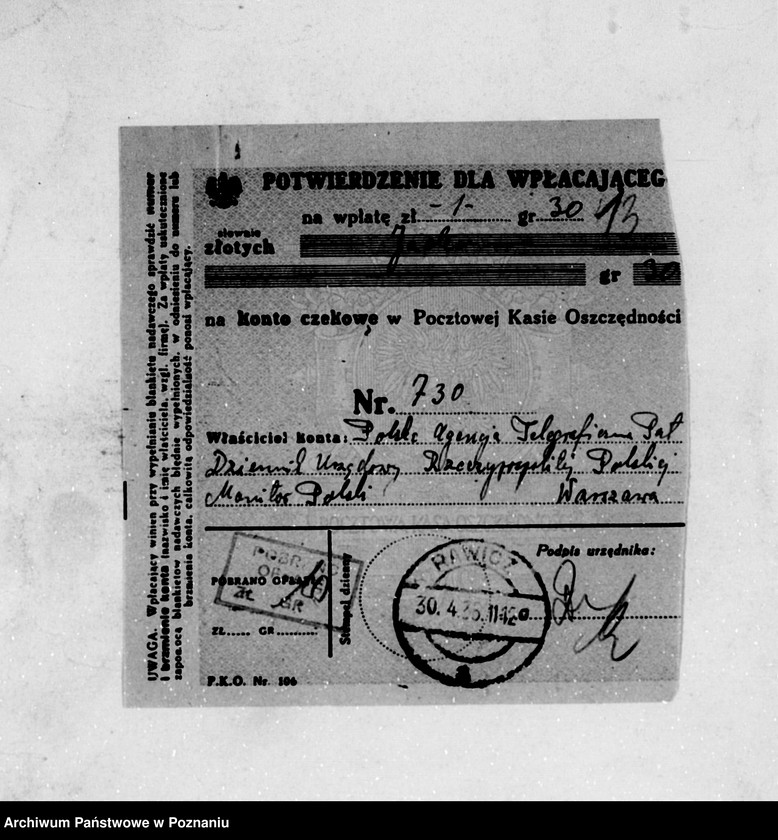 POTWIERDZENIE DLA WPŁACAJĄCEG
na wpłatę zł -1- gr 30
słownie
złotych
gr 30
na konto czekowe w Pocztowej Kasie Oszczędności
Nr. 730
Właściciel konta: Polska Agencja Telegraficzna Pat
Dziennik Urzędowy Rzeczypospolitej Polskiej
Monitor Polski Warszawa
POBRANO
POBRANO OPŁATĘ
zł
GR
ZŁ..... GR..........
Stempel dzienny
RAWICZ
30. 4. 36. 11-12
a
Podpis urzędnika:
P.K.O. Nr. 106
UWAGA. Wpłacający winien przy wypełnianiu blankietu nadawczego sprawdzić numer
i brzmienie konta (nazwisko i imię właściciela, wzgl. firmę). Za wpłaty uskutecznione
zapomocą blankietów nadawczych błędnie wypełnionych, w odniesieniu do numeru lub
brzmienia konta, całkowitą odpowiedzialność ponosi wpłacający.
Archiwum Państwowe w Poznaniu